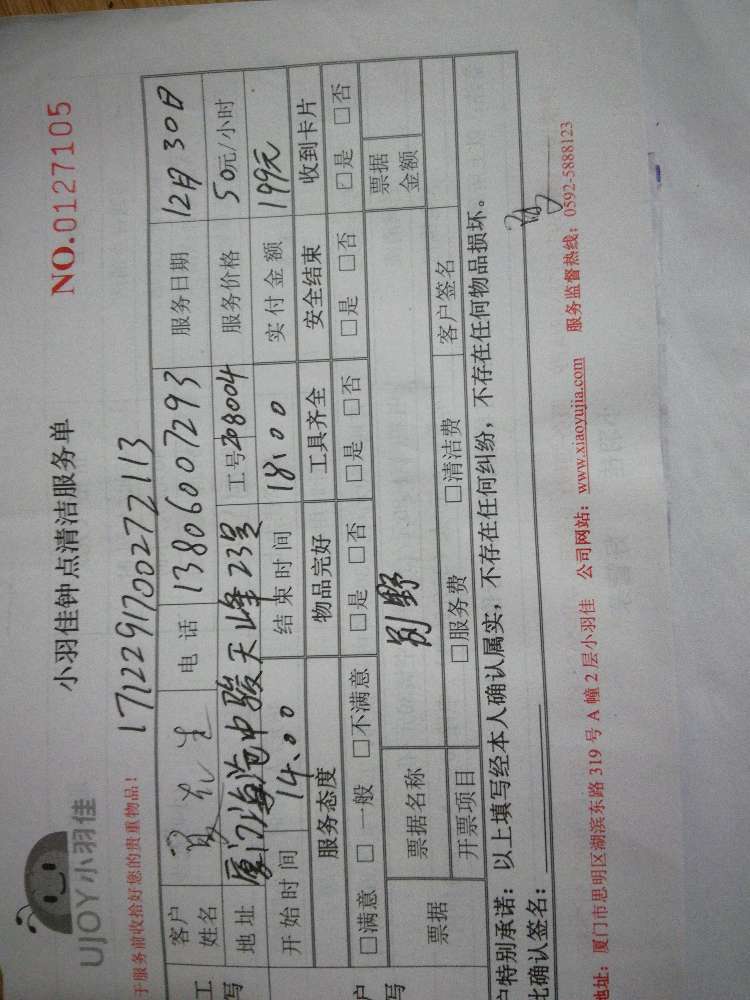 UJOY 小羽佳
小羽佳钟点清洁服务单
NO.0127105
于服务前收拾好您的贵重物品！
1712291700272113
客户姓名 先生 电话 13806007293 服务日期 12月30日
地址 厦门海沧中骏天峰23号 工号 208004 服务价格 50元/小时
开始时间 14:00 结束时间 18:00 实付金额 199元
服务态度 物品完好 工具齐全 安全结束 收到卡片
□满意 □一般 □不满意 □是 □否 □是 □否 □是 □否 □是 □否
票据 票据名称 别野 票据金额
开票项目 □服务费 □清洁费 客户签名
户特别承诺：以上填写经本人确认属实，不存在任何纠纷，不存在任何物品损坏。
此确认签名：
地址：厦门市思明区湖滨东路 319 号 A 幢 2 层小羽佳 公司网站：www.xiaoyujia.com 服务监督热线：0592-5888123